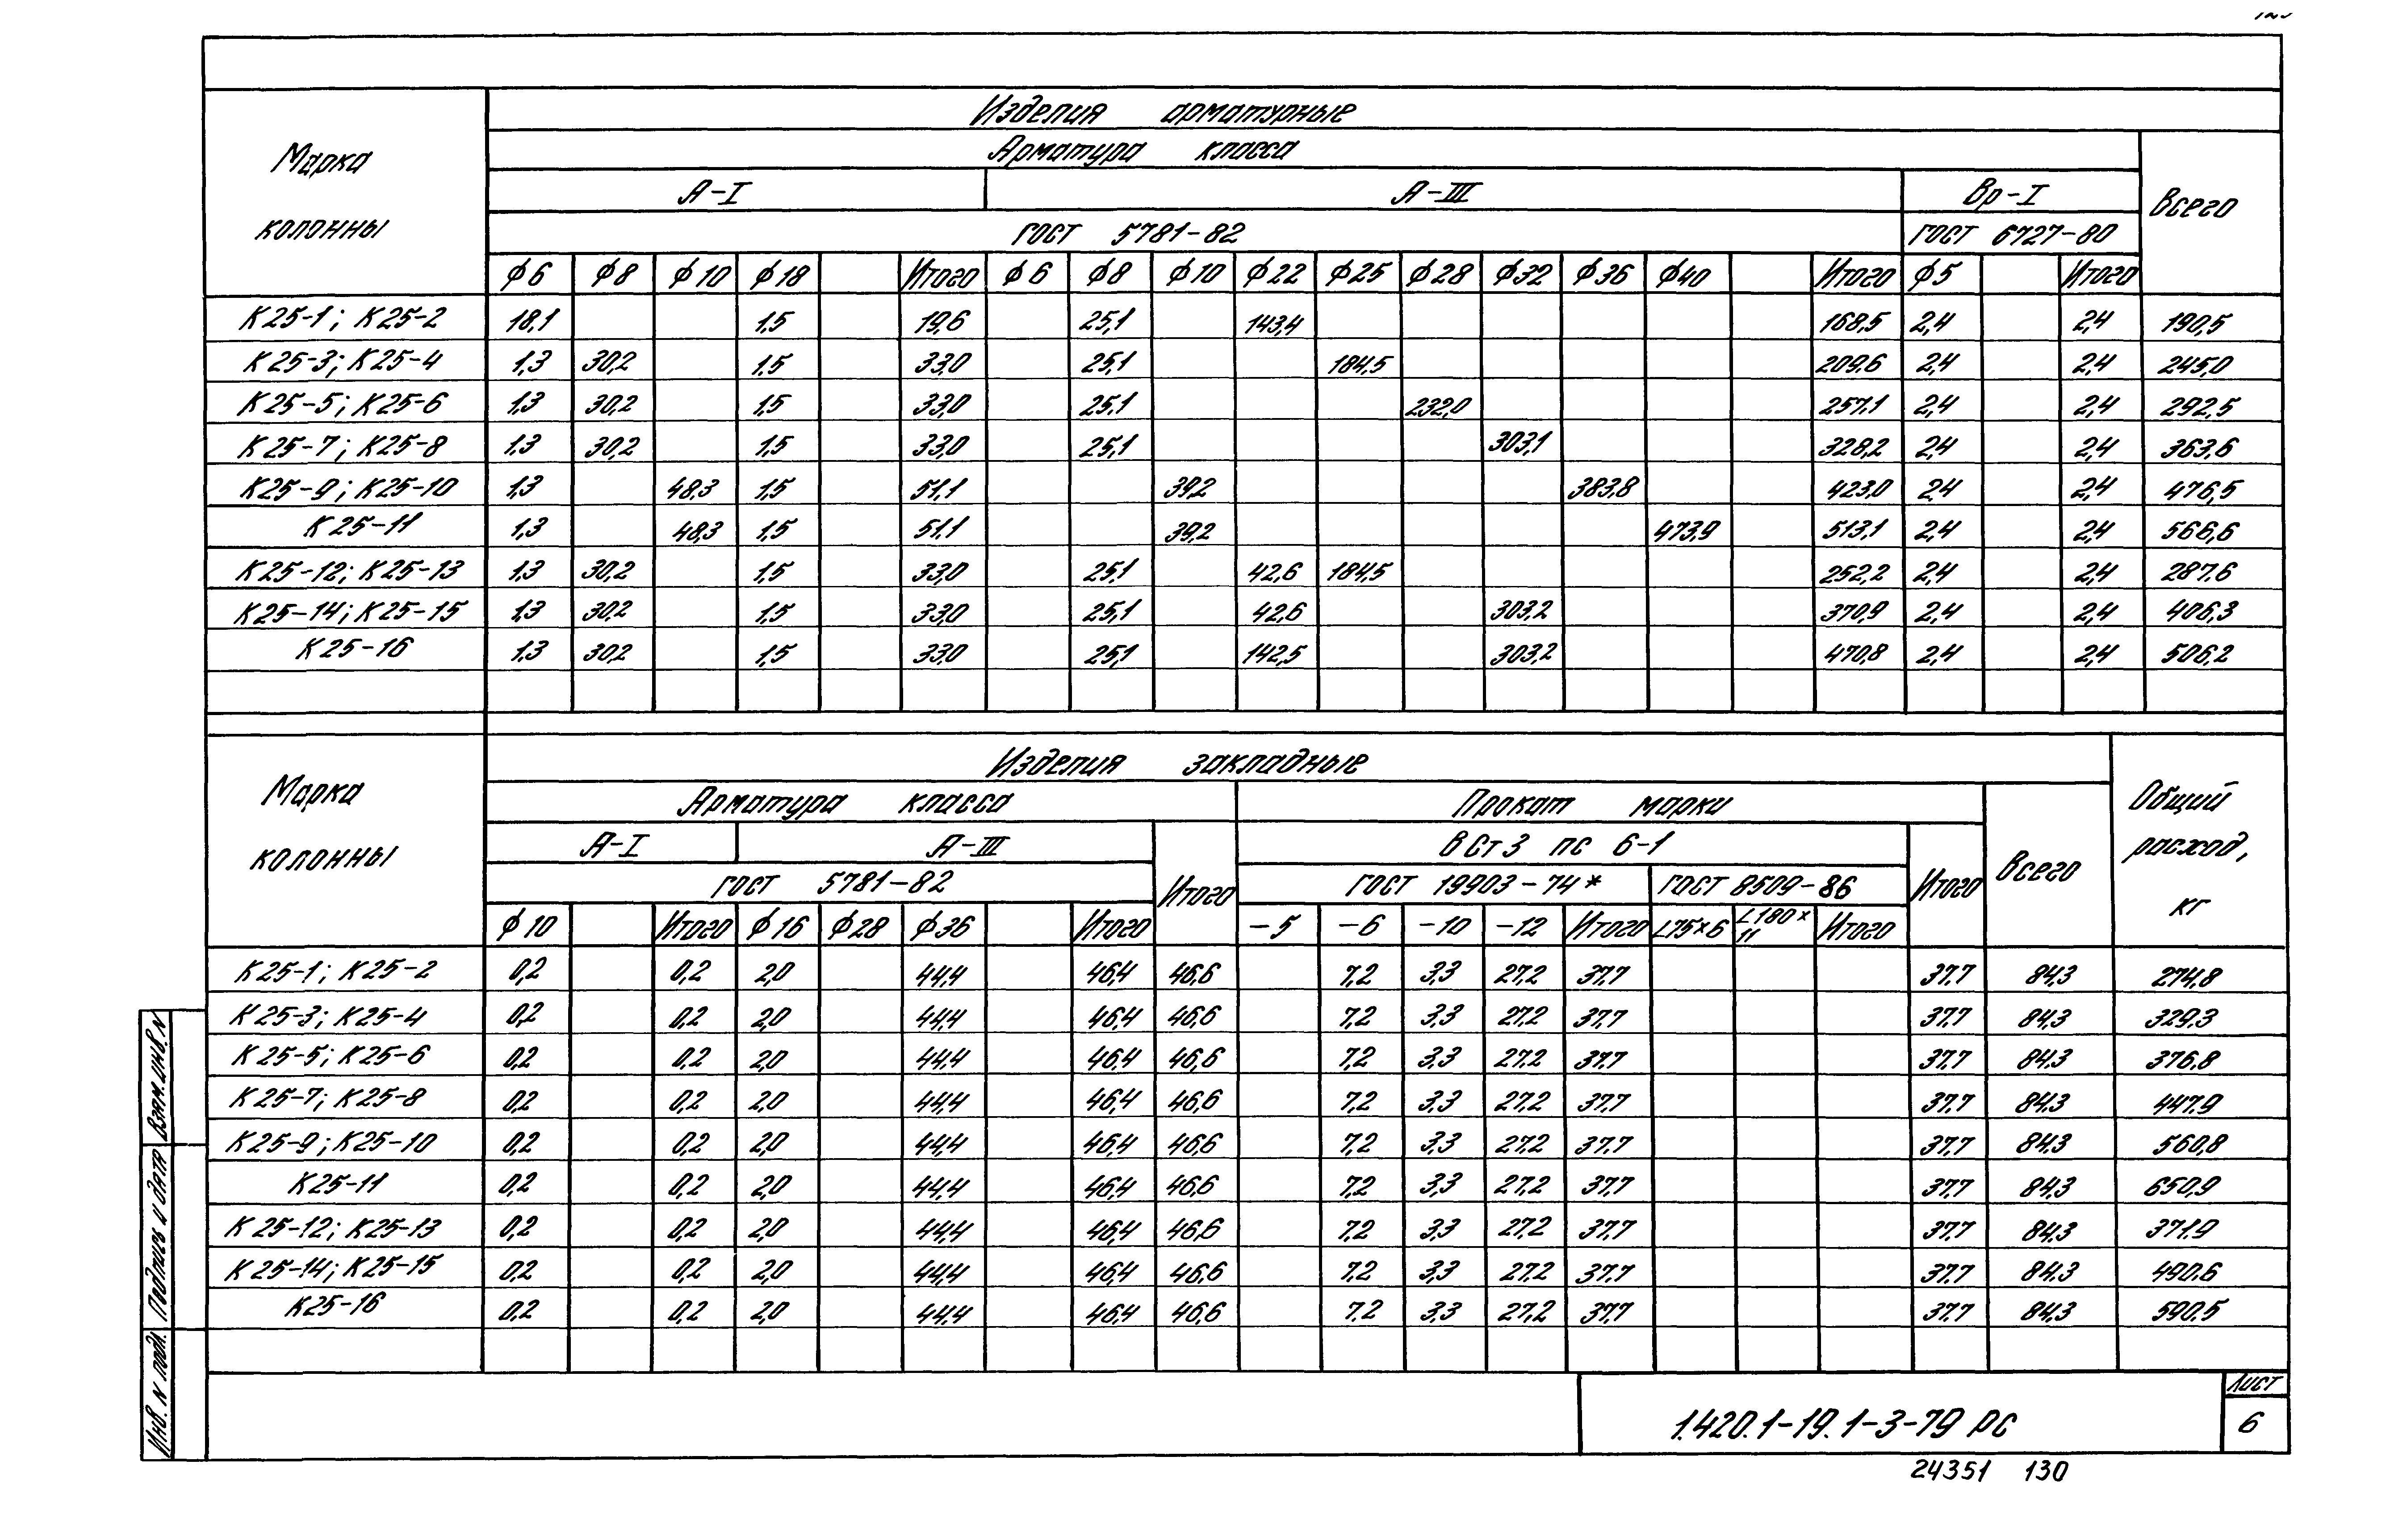 Изделия арматурные
Марка колонны
Арматура класса
Всего
А-I А-III Вр-I
ГОСТ 5781-82 ГОСТ 6727-80
ϕ6 ϕ8 ϕ10 ϕ18 Итого ϕ6 ϕ8 ϕ10 ϕ22 ϕ25 ϕ28 ϕ32 ϕ36 ϕ40 Итого ϕ5 Итого
К25-1; К25-2 18,1 1,5 19,6 25,1 143,4 168,5 2,4 2,4 190,5
К25-3; К25-4 1,3 30,2 1,5 33,0 25,1 184,5 209,6 2,4 2,4 245,0
К25-5; К25-6 1,3 30,2 1,5 33,0 25,1 232,0 257,1 2,4 2,4 292,5
К25-7; К25-8 1,3 30,2 1,5 33,0 25,1 303,1 328,2 2,4 2,4 363,6
К25-9; К25-10 1,3 48,3 1,5 51,1 39,2 383,8 423,0 2,4 2,4 476,5
К25-11 1,3 48,3 1,5 51,1 39,2 473,9 513,1 2,4 2,4 566,6
К25-12; К25-13 1,3 30,2 1,5 33,0 25,1 42,6 184,5 252,2 2,4 2,4 287,6
К25-14; К25-15 1,3 30,2 1,5 33,0 25,1 42,6 303,2 370,9 2,4 2,4 406,3
К25-16 1,3 30,2 1,5 33,0 25,1 142,5 303,2 470,8 2,4 2,4 506,2
Изделия закладные
Марка колонны
Арматура класса Прокат марки
Общий расход, кг
А-I А-III
Итого
ВСт3 пс 6-1
Итого
Всего
ГОСТ 5781-82 ГОСТ 19903-74* ГОСТ 8509-86
ϕ10 Итого ϕ16 ϕ28 ϕ36 Итого -5 -6 -10 -12 Итого L75×6 L180×11 Итого
К25-1; К25-2 0,2 0,2 2,0 44,4 46,4 46,6 7,2 3,3 27,2 37,7 37,7 84,3 274,8
К25-3; К25-4 0,2 0,2 2,0 44,4 46,4 46,6 7,2 3,3 27,2 37,7 37,7 84,3 329,3
К25-5; К25-6 0,2 0,2 2,0 44,4 46,4 46,6 7,2 3,3 27,2 37,7 37,7 84,3 376,8
К25-7; К25-8 0,2 0,2 2,0 44,4 46,4 46,6 7,2 3,3 27,2 37,7 37,7 84,3 447,9
К25-9; К25-10 0,2 0,2 2,0 44,4 46,4 46,6 7,2 3,3 27,2 37,7 37,7 84,3 560,8
К25-11 0,2 0,2 2,0 44,4 46,4 46,6 7,2 3,3 27,2 37,7 37,7 84,3 650,9
К25-12; К25-13 0,2 0,2 2,0 44,4 46,4 46,6 7,2 3,3 27,2 37,7 37,7 84,3 371,9
К25-14; К25-15 0,2 0,2 2,0 44,4 46,4 46,6 7,2 3,3 27,2 37,7 37,7 84,3 490,6
К25-16 0,2 0,2 2,0 44,4 46,4 46,6 7,2 3,3 27,2 37,7 37,7 84,3 590,5
Взам. инв. N
Подпись и дата
Инв. N подл.
1.420.1-19.1-3-79 РС
Лист
6
24351 130